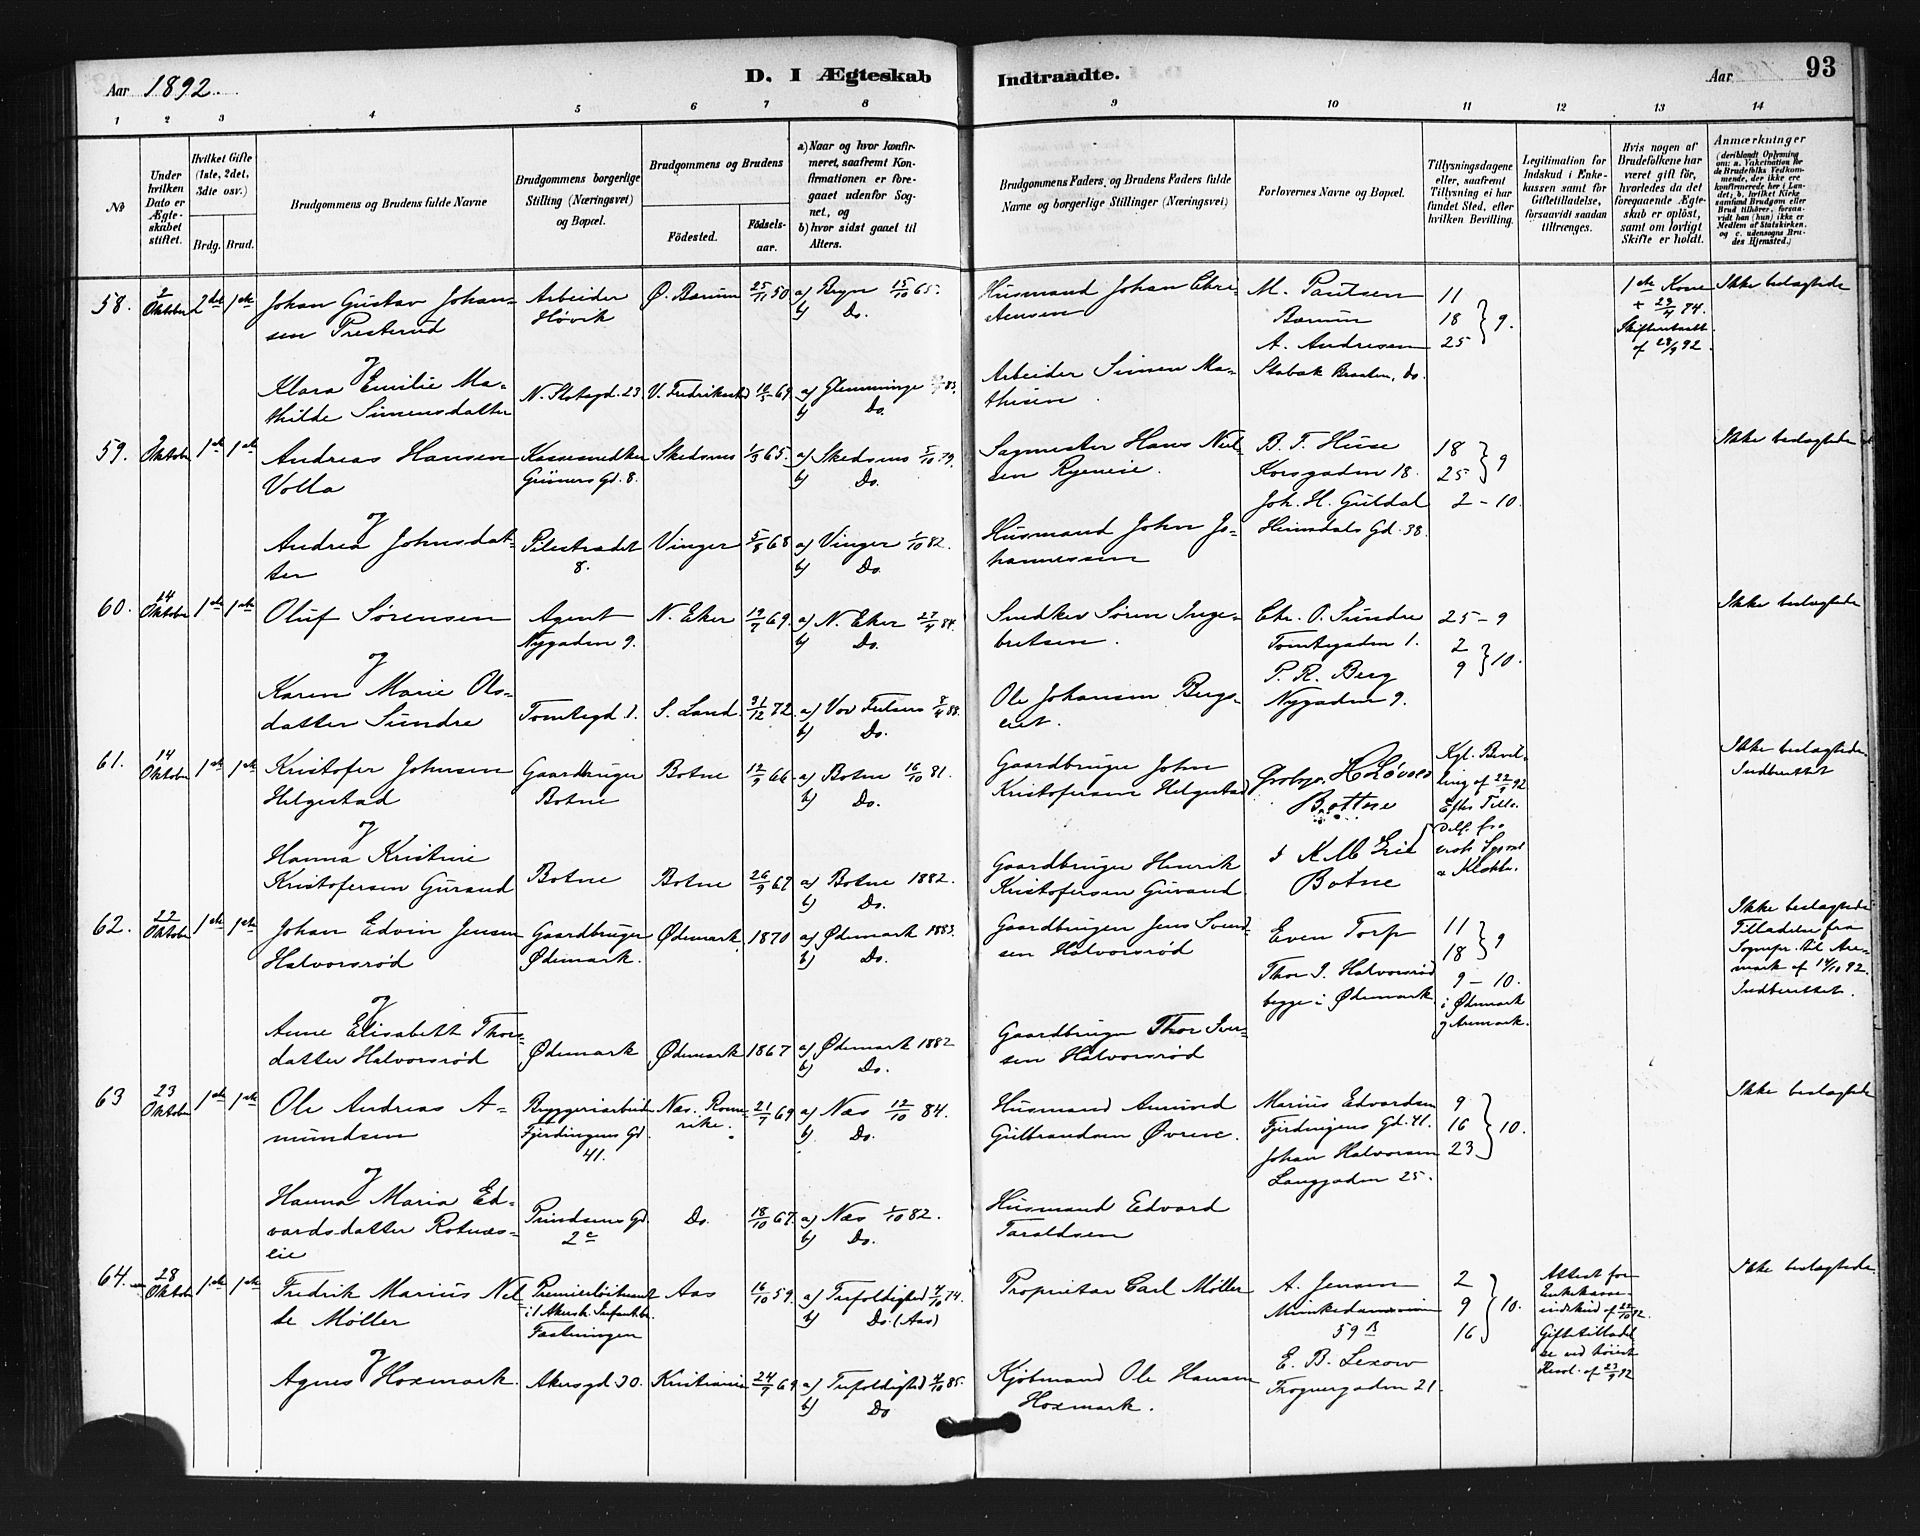 Aar 1892.
D. I Ægteskab Indtraadte.
Aar
93
1 2 3 4 5 6 7 8 9 10 11 12 13 14
No
Under hvilken Dato er Ægteskabet stiftet.
Hvilket Gifte (1ste, 2det, 3die osv.)
Brdg. Brud.
Brudgommens og Brudens fulde Navne
Brudgommens borgerlige Stilling (Næringsvei) og Bopæl.
Brudgommens og Brudens
Födested.
Födselsaar.
a) Naar og hvor konfirmeret, saafremt Konfirmationen er foregaaet udenfor Sognet, og
b) hvor sidst gaaet til Alters.
Brudgommens Faders og Brudens Faders fulde Navne og borgerlige Stillinger (Næringsvei)
Forlovernes Navne og Bopæl.
Tillysningsdagene eller, saafremt Tillysning ei har fundet Sted, efter hvilken Bevilling.
Legitimation for Indskud i Enkekassen samt for Giftetilladelse, forsaavidt saadan tiltrænges.
Hvis nogen af Brudefolkene har været gift för, hvorledes da det foregaaende Ægteskab er oplöst, samt om lovligt Skifte er holdt.
Anmærkninger
(deriblandt Oplysning om: a. Vakcination for de Brudefolks Vedkommende, der ikke ere konfirmerede her i Landet; b. hvilket Kirkesamfund Brudgom eller Brud tilhörer, forsaavidt han (hun) ikke er Medlem af Statskirken, og c. udensogns Brudes Hjemsted.)
58. 2 Oktober 2det 1ste
Johan Gustav Johansen Presterud
Arbeider Høvik
Ø. Bærum 25/11 50
a) Ryn 15/10 65.
b) Do.
Husmand Johan Christensen
M. Paulsen
Bærum
A. Andresen
Stabæk Braaten, do.
11
18
25 } 9.
1ste Kone
+ 29/4 84.
Skifteattest
af 28/9 92.
Ikke beslægtede
og
Klara Emilie Mathilde Simensdatter
N. Slotsgd. 23
V. Fredrikstad
69
a) Glemminge
b) Do.
Arbeider Simen Mathisen.
59. 2 Oktober 1ste 1ste
Andreas Hansen Volla
Kassesmedker Grüners Gd. 8.
Skedsmo 1/3 65.
a) Skedsmo 5/10 79.
b) Do.
Sagmester Hans Nielsen Ryeneie.
B. T. Huse
Korsgaden 18.
Joh. H. Guldal
Heimdals Gd. 38.
18
25 } 9
2 - 10.
Ikke beslægtede
og
Andrea Johnsdatter
Pilestrædet 8.
Vinger 5/8 68
a) Vinger 1/10 82.
b) Do.
Husmand John Johannessen
60. 14 Oktober 1ste 1ste
Oluf Sørensen
Agent
Nygaden 9.
N. Eker 19/7 69.
a) N. Eker 27/4 84.
b) Do.
Snedker Søren Ingebretsen.
Chr. O. Sundre
Tomtegaden 1.
P. R. Berg
Nygaden 9.
25 - 9
2
9 } 10.
Ikke beslægtede
og
Karen Marie Olsdatter Sundre
Tomtegd. 1.
S. Land. 31/12 72.
a) Vor Frelsers 8/4 88.
b) Do.
Ole Johansen Bergseiet.
61. 14 Oktober 1ste 1ste
Kristofer Johnsen Helgestad
Gaardbruger
Botne
Botne 12/9 66
a) Botne 16/10 81.
b) Do.
Gaardbruger John
Kristofersen Helgestad
Bottne
Botne
Kgl. Bevilling af 22/9 92
Ikke beslægtede
Indberettet
og
Hanna Kristine
Kristofersen Gurand
Botne
Botne 26/9 67
a) Botne 1882.
b) Do.
Gaardbruger Henrik
Kristofersen Gurand.
62. 22 Oktober 1ste 1ste
Johan Edvin Jensen Halvorsrød
Gaardbruger
Ødemark.
Ødemark 1870
a) Ødemark 1885.
b) Do.
Gaardbruger Jens Svendsen Halvorsrød
Even Torp
Thor I. Halvorsrød
begge i Ødemark
11
18 } 9
9 - 10.
i Ødemark
og Aremark.
Ikke beslægtede
Tilladelse fra
Sognepr. til Aremark af 14/10 92.
Indberettet.
og
Anne Elisabeth Thorsdatter Halvorsrød
Ødemark
Ødemark 1867
a) Ødemark 1882
b) Do.
Gaardbruger Thor Iversen Halvorsrød
63 23 Oktober 1ste 1ste
Ole Andreas Amundsen
Bryggeriarbeider
Fjerdingens Gd. 41.
Næs. Romerike.
21/7 69
a) Næs 12/10 84.
b) Do.
Husmand Amund
Gulbrandsen Øvreie.
Marius Edvardsen
Fjerdingens Gd. 41.
Johan Halvorsen
Langgaden 25.
9
16
23 } 10.
Ikke beslægtede
og
Hanna Maria Edvardsdatter Rotnæseie
Prindsens Gd. 2c
Do. 18/10 67.
a) Næs 1/10 82.
b) Do.
Husmand Edvard
Taraldsen
64. 28 Oktober 1ste 1ste
Fredrik Marius Møller
Premierløitnant
i 1 Akersh. Infantbr.
Fæstningen
Aas 16/10 59.
a) Trefoldighed 4/10 74.
b) Do. (Aas)
Proprietær Carl Møller
A. Jensen
Munkedamsveien
59 B
E. B. Lexow
Frognergaden 21.
2
9
16 } 10.
Attest for
Enkekasseindskud af 22/10 92.
Giftetilladelse ved høieste
Resol. af 23/9 92
Ikke beslægtede.
og
Agnes Hoxmark.
Akersgd. 30.
Kristiania 24/7 69
a) Trefoldighed 4/10 85.
b) Do
Kjøbmand Ole Hansen
Hoxmark.